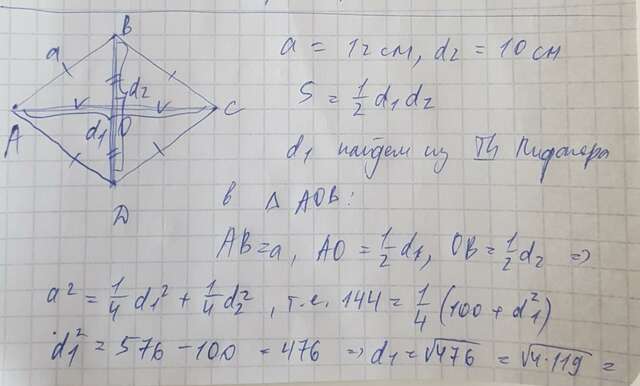 B
a
d2
A
d1
O
C
D
a = 12 см, d2 = 10 см
S = 1/2 d1 d2
d1 найдем из Th Пифагора
в Δ AOB:
AB = a, AO = 1/2 d1, OB = 1/2 d2 ⇒
a² = 1/4 d1² + 1/4 d2², т.е. 144 = 1/4 (100 + d1²)
d1² = 576 - 100 = 476 ⇒ d1 = √476 = √4·119 =